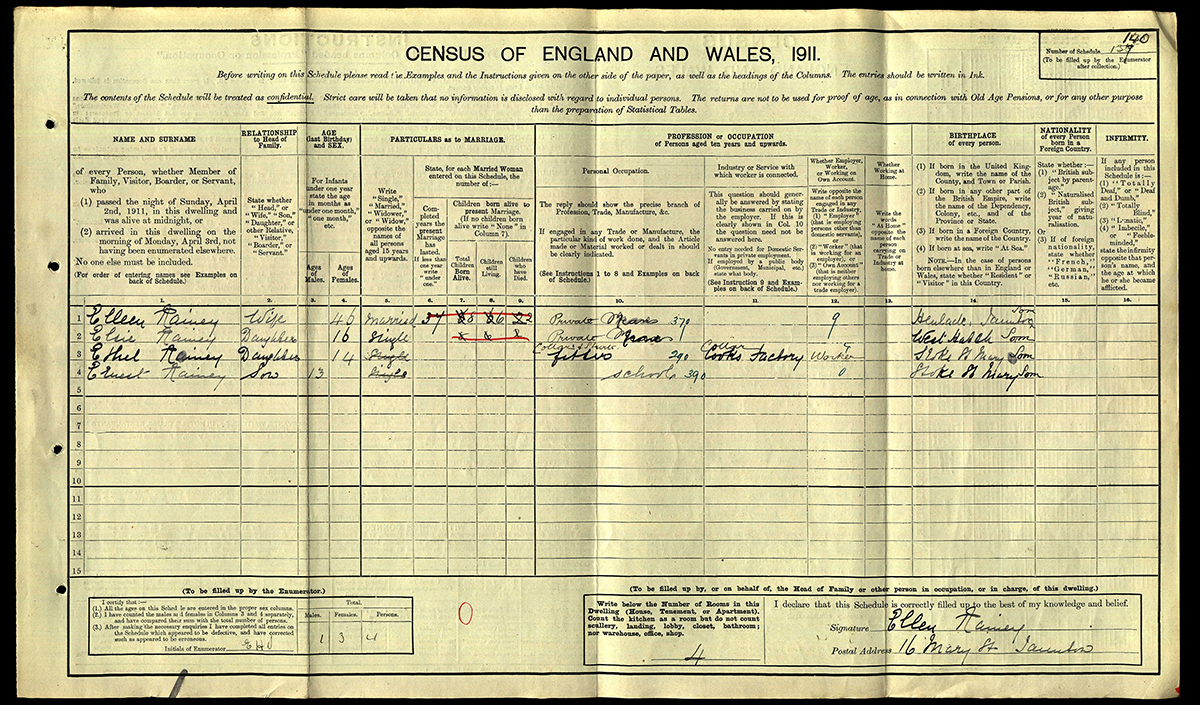 140
CENSUS OF ENGLAND AND WALES, 1911.
Number of Schedule
(To be filled up by the Enumerator after collection.)
Before writing on this Schedule please read the Examples and the Instructions given on the other side of the paper, as well as the headings of the Columns. The entries should be written in Ink.
The contents of the Schedule will be treated as confidential. Strict care will be taken that no information is disclosed with regard to individual persons. The returns are not to be used for proof of age, as in connection with Old Age Pensions, or for any other purpose
than the preparation of Statistical Tables.
NAME AND SURNAME
RELATIONSHIP to Head of Family.
AGE (last Birthday) and SEX.
PARTICULARS as to MARRIAGE.
PROFESSION or OCCUPATION of Persons aged ten years and upwards.
BIRTHPLACE of every person.
NATIONALITY of every Person born in a Foreign Country.
INFIRMITY.
of every Person, whether Member of Family, Visitor, Boarder, or Servant, who
(1) passed the night of Sunday, April 2nd, 1911, in this dwelling and was alive at midnight, or
(2) arrived in this dwelling on the morning of Monday, April 3rd, not having been enumerated elsewhere.
No one else must be included.
(For order of entering names see Examples on back of Schedule.)
State whether "Head," or "Wife," "Son," "Daughter," or other Relative, "Visitor," "Boarder," or "Servant."
For Infants under one year state the age in months as "under one month," "one month," etc.
Ages of Males.
Ages of Females.
Write "Single," "Married," "Widower," or "Widow," opposite the names of all persons aged 15 years and upwards.
State, for each Married Woman entered on this Schedule, the number of:—
Completed years the present Marriage has lasted. If less than one year write "under one."
Children born alive to present Marriage. (If no children born alive write "None" in Column 7).
Total Children Born Alive.
Children still Living.
Children who have Died.
Personal Occupation.
The reply should show the precise branch of Profession, Trade, Manufacture, &c.
If engaged in any Trade or Manufacture, the particular kind of work done, and the Article made or Material worked or dealt in should be clearly indicated.
(See Instructions 1 to 8 and Examples on back of Schedule.)
Industry or Service with which worker is connected.
This question should generally be answered by stating the business carried on by the employer. If this is clearly shown in Col. 10 the question need not be answered here.
No entry needed for Domestic Servants in private employment. If employed by a public body (Government, Municipal, etc.) state what body.
(See Instruction 9 and Examples on back of Schedule.)
Whether Employer, Worker, or Working on Own Account.
Write opposite the name of each person engaged in any Trade or Industry, (1) "Employer" (that is employing persons other than domestic servants), or (2) "Worker" (that is working for an employer), or (3) "Own Account" (that is neither employing others nor working for a trade employer).
Whether Working at Home.
Write the words "At Home" opposite the name of each person carrying on Trade or Industry at home.
(1) If born in the United Kingdom, write the name of the County, and Town or Parish.
(2) If born in any other part of the British Empire, write the name of the Dependency, Colony, etc., and of the Province or State.
(3) If born in a Foreign Country, write the name of the Country.
(4) If born at sea, write "At Sea."
NOTE.—In the case of persons born elsewhere than in England or Wales, state whether "Resident" or "Visitor" in this Country.
State whether:—
(1) "British subject by parentage."
(2) "Naturalised British subject," giving year of naturalisation.
Or
(3) If of foreign nationality, state whether "French," "German," "Russian," etc.
If any person included in this Schedule is:—
(1) "Totally Deaf," or "Deaf and Dumb,"
(2) "Totally Blind,"
(3) "Lunatic,"
(4) "Imbecile," or "Feeble-minded,"
state the infirmity opposite that person's name, and the age at which he or she became afflicted.
1. 2. 3. 4. 5. 6. 7. 8. 9. 10. 11. 12. 13. 14. 15. 16.
1 Ellen Rainey Wife 46 Married Private 370 9 Taunton Som
2 Elsie Rainey Daughter 16 Single Private West Hatch Som
3 Ethel Rainey Daughter 14 Single Collar & Shirt fitter 290 Collar Cooks Factory Worker Stoke St Mary Som
4 Ernest Rainey Son 13 Single school 390 0 Stoke St Mary Som
5
6
7
8
9
10
11
12
13
14
15
(To be filled up by the Enumerator.)
I certify that:—
(1.) All the ages on this Schedule are entered in the proper sex columns.
(2.) I have counted the males and females in Columns 3 and 4 separately, and have compared their sum with the total number of persons.
(3.) After making the necessary enquiries I have completed all entries on the Schedule which appeared to be defective, and have corrected such as appeared to be erroneous.
Initials of Enumerator
Total.
Males. Females. Persons.
1 3 4
0
(To be filled up by, or on behalf of, the Head of Family or other person in occupation, or in charge, of this dwelling.)
Write below the Number of Rooms in this Dwelling (House, Tenement, or Apartment). Count the kitchen as a room but do not count scullery, landing, lobby, closet, bathroom; nor warehouse, office, shop.
4
I declare that this Schedule is correctly filled up to the best of my knowledge and belief.
Signature Ellen Rainey
Postal Address 16 Mary St Taunton